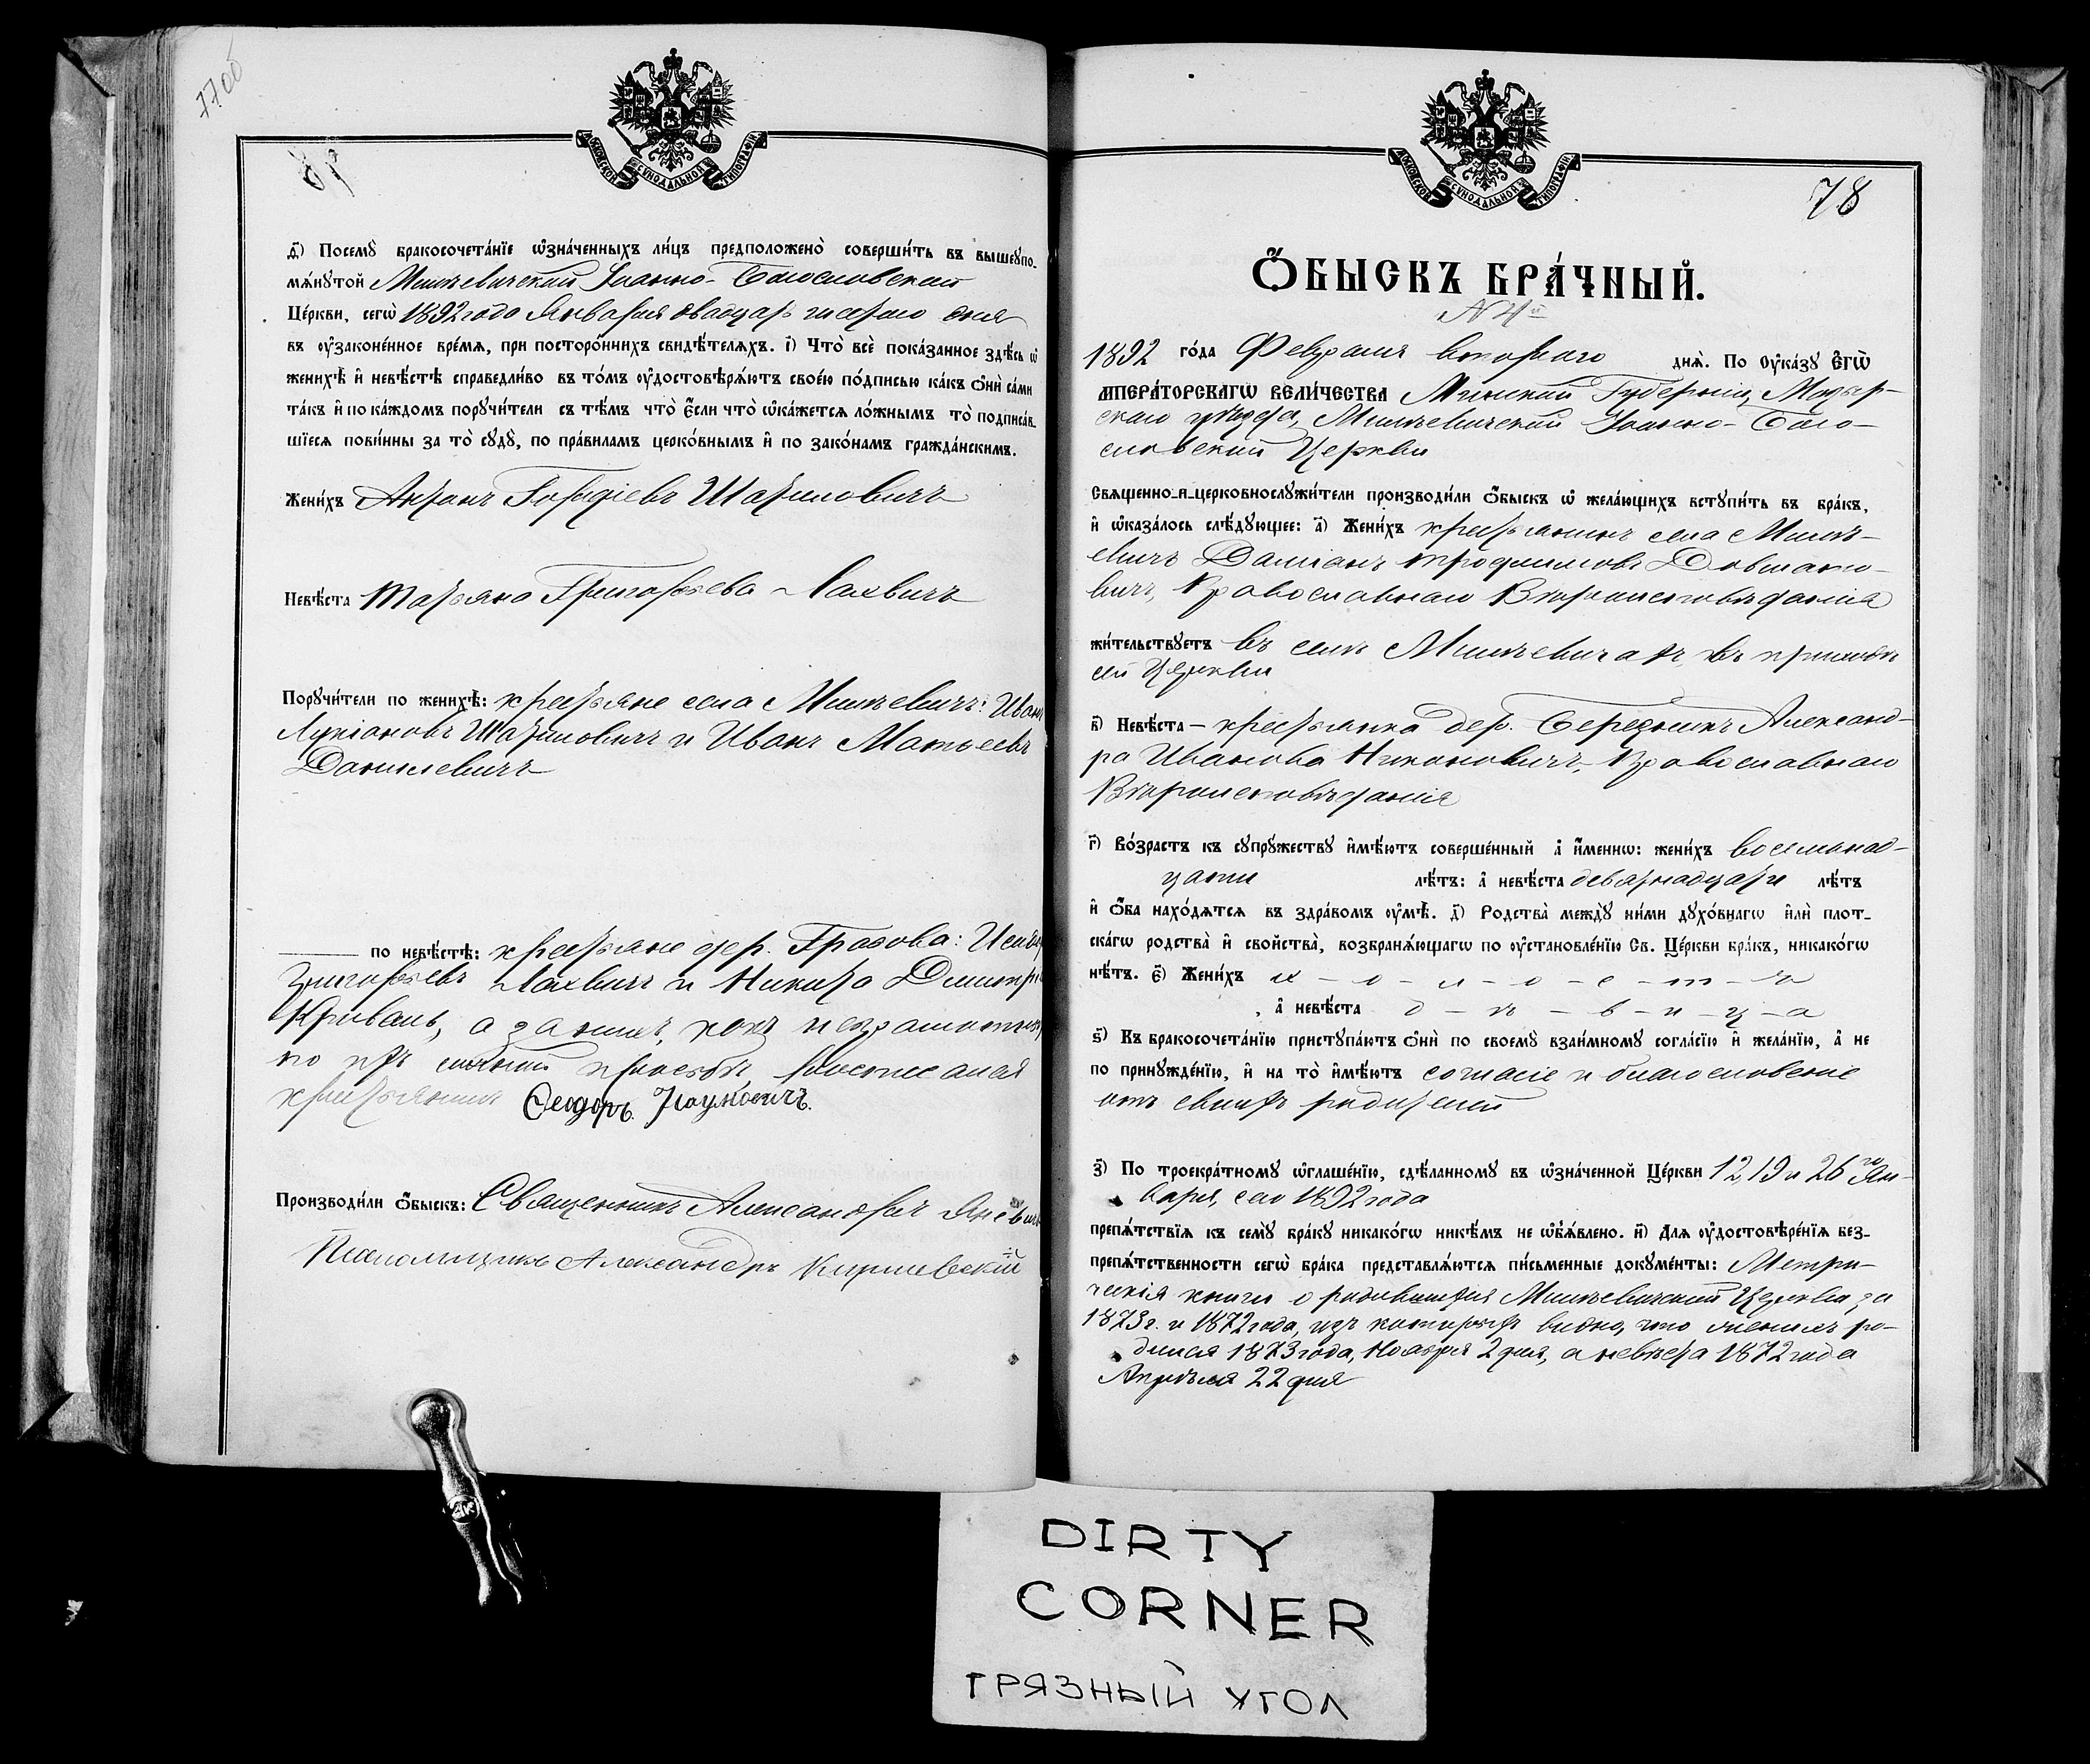 77об
д҃) Посемꙋ бракосочета́нїе ѡ҆зна́ченныхъ ли́цъ предположено̀ соверши́ть въ вышеꙋпо-
мѧ́нꙋтой Мишевичской Іоанно-Богословской
Це́ркви, сегѡ̀ 1892 года Января двадцать шестаго дня
въ ᲂу҆законе́нное вре́мѧ, при посторо́ннихъ свидѣ́телѧхъ. і҃) Что̀ всѐ пока́занное здѣ́сь ѡ҆
женихѣ̀ и҆ невѣ́стѣ справедли́во въ то́мъ ᲂу҆достовѣрѧ́ютъ свое́ю по́дписью ка́къ ѻ҆нѝ са́ми
та́къ и҆ по ка́ждомъ порꙋчи́тели съ тѣ́мъ что̀ є҆́сли что̀ ѡ҆ка́жетсѧ ло́жнымъ то̀ подписа́в-
шїесѧ пови́нны за то̀ сꙋдꙋ̀, по пра́виламъ церко́внымъ и҆ по зако́намъ гражда́нскимъ.
Жени́хъ Антонъ Гордіевъ Шатиловичъ
Невѣ́ста Татьяна Григорьева Лахвичъ
Порꙋчи́тели по женихѣ̀: крестьяне села Мишевичъ: Иванъ
Лукіановъ Шатиловичъ и Иванъ Матвеевъ
Данилевичъ
по невѣ́стѣ: крестьяне дер. Грабова:
Григорьевъ Лахвичъ и Никита
Криваль, а за нихъ,
по ихъ личной просьбѣ, росписался
крестьянинъ Ѳеодоръ Наумовичъ.
Производи́ли ѻ҆́быскъ: Священникъ Александръ
Псаломщикъ Александръ Киркевскій
78
Ѻ҆́БЫСКЪ БРА́ЧНЫЙ.
№ 4й
1892 го́да Февраля втораго днѧ̀. По ᲂу҆ка́зꙋ Є҆ГѠ̀
ИМПЕРА́ТОРСКАГѠ ВЕЛИ́ЧЕСТВА Минской Губерніи, Мозыр-
скаго уѣзда, Мишевичской Іоанно-Бого-
словской Церкви
Свѧщенно-и-церковнослꙋжи́тели производи́ли ѻ҆́быскъ ѡ҆ жела́ющихъ встꙋпи́ть въ бра́къ,
и҆ ѡ҆каза́лось слѣ́дꙋющее: а҃) Жени́хъ крестьянинъ села Миш-
евичъ Даміанъ Трофимовъ Довнано-
вичъ, Православнаго Вѣроисповѣданія
жи́тельствꙋетъ въ селѣ Мишевичахъ въ приходѣ
сей Церкви
в҃) Невѣ́ста — крестьянка дер. Березнякъ Александ-
ра Иванова Никоновичъ, Православнаго
Вѣроисповѣданія
г҃) Во́зрастъ къ сꙋпрꙋ́жествꙋ и҆мѣ́ютъ соверше́нный а҆ и҆́менно: жени́хъ восемнад-
цати лѣ́тъ: а҆ невѣ́ста девятнадцати лѣ́тъ
и҆ ѻ҆́ба нахо́дѧтсѧ въ здра́вомъ ᲂу҆мѣ̀. д҃) Родства̀ междꙋ̀ ни́ми дꙋхо́внагѡ и҆лѝ плот-
ска́гѡ родства̀ и҆ свойства̀, возбранѧ́ющагѡ по ᲂу҆становле́нїю Св. Це́ркви бра́къ, никако́гѡ
нѣ́тъ. є҃) Жени́хъ х - о - л - о - с - т - ъ
а҆ невѣ́ста д - ѣ - в - и - ц - а
ѕ҃) Къ бракосочета́нїю пристꙋпа́ютъ ѻ҆нѝ по своемꙋ̀ взаи́мномꙋ согла́сїю и҆ жела́нїю, а҆ не
по принꙋжде́нїю, и҆ на то̀ и҆мѣ́ютъ согласіе и благословеніе
отъ своихъ родителей
з҃) По троекра́тномꙋ ѡ҆глаше́нїю, сдѣ́ланномꙋ въ ѡ҆зна́ченной Це́ркви 12, 19 и 26го Ян-
варя, сего 1892 года
препѧ́тствїѧ къ семꙋ̀ бра́кꙋ никако́гѡ никѣ́мъ не ѡ҆б̾ѧ́влено. и҃) Длѧ ᲂу҆достовѣре́нїѧ без-
препѧ́тственности сегѡ̀ бра́ка представлѧ́ютсѧ пи́сьменные докꙋме́нты: Метри-
ческія книги о родившихся Мишевичской Церкви за
1873 г. и 1872 года, изъ которыхъ видно, что женихъ ро-
дился 1873 года, Ноября 2 дня, а невѣста 1872 года
Апрѣля 22 дня
DIRTY
CORNER
ГРЯЗНЫЙ УГОЛ